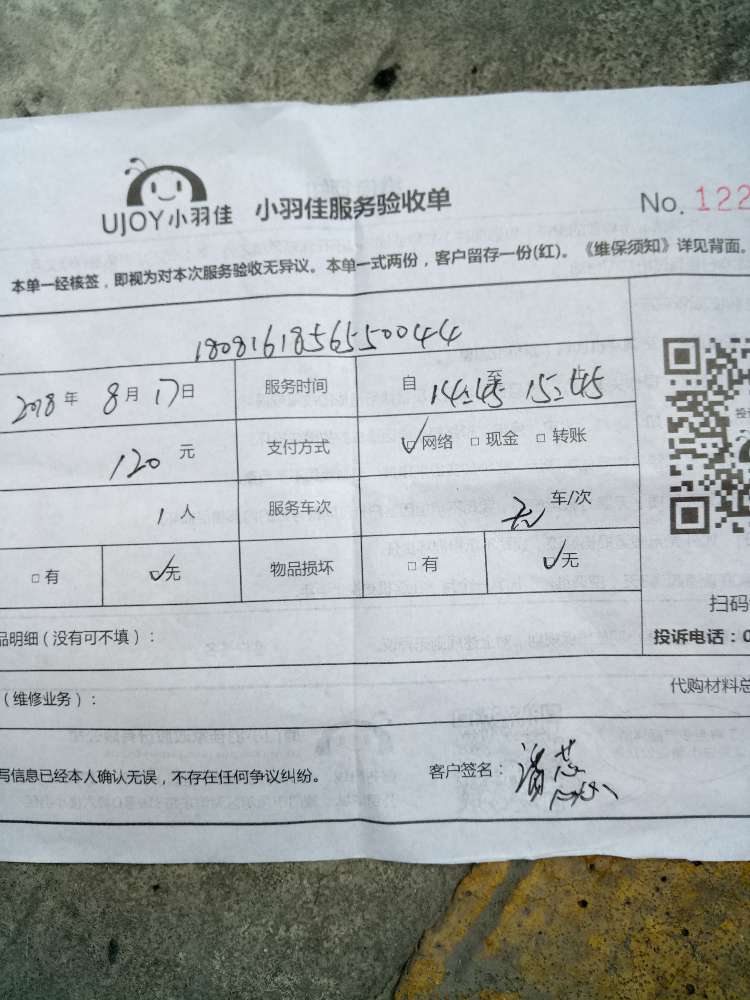 UJOY小羽佳 小羽佳服务验收单 No. 122
本单一经核签，即视为对本次服务验收无异议。本单一式两份，客户留存一份(红)。《维保须知》详见背面。
1808161856550044
2018年 8月17日 服务时间 自14:45 至15:45
120元 支付方式 ☑网络 □现金 □转账
1人 服务车次 车/次
□有 ☑无 物品损坏 □有 ☑无
扫码
品明细（没有可不填）：
投诉电话：0
（维修业务）：
代购材料总
写信息已经本人确认无误，不存在任何争议纠纷。 客户签名：